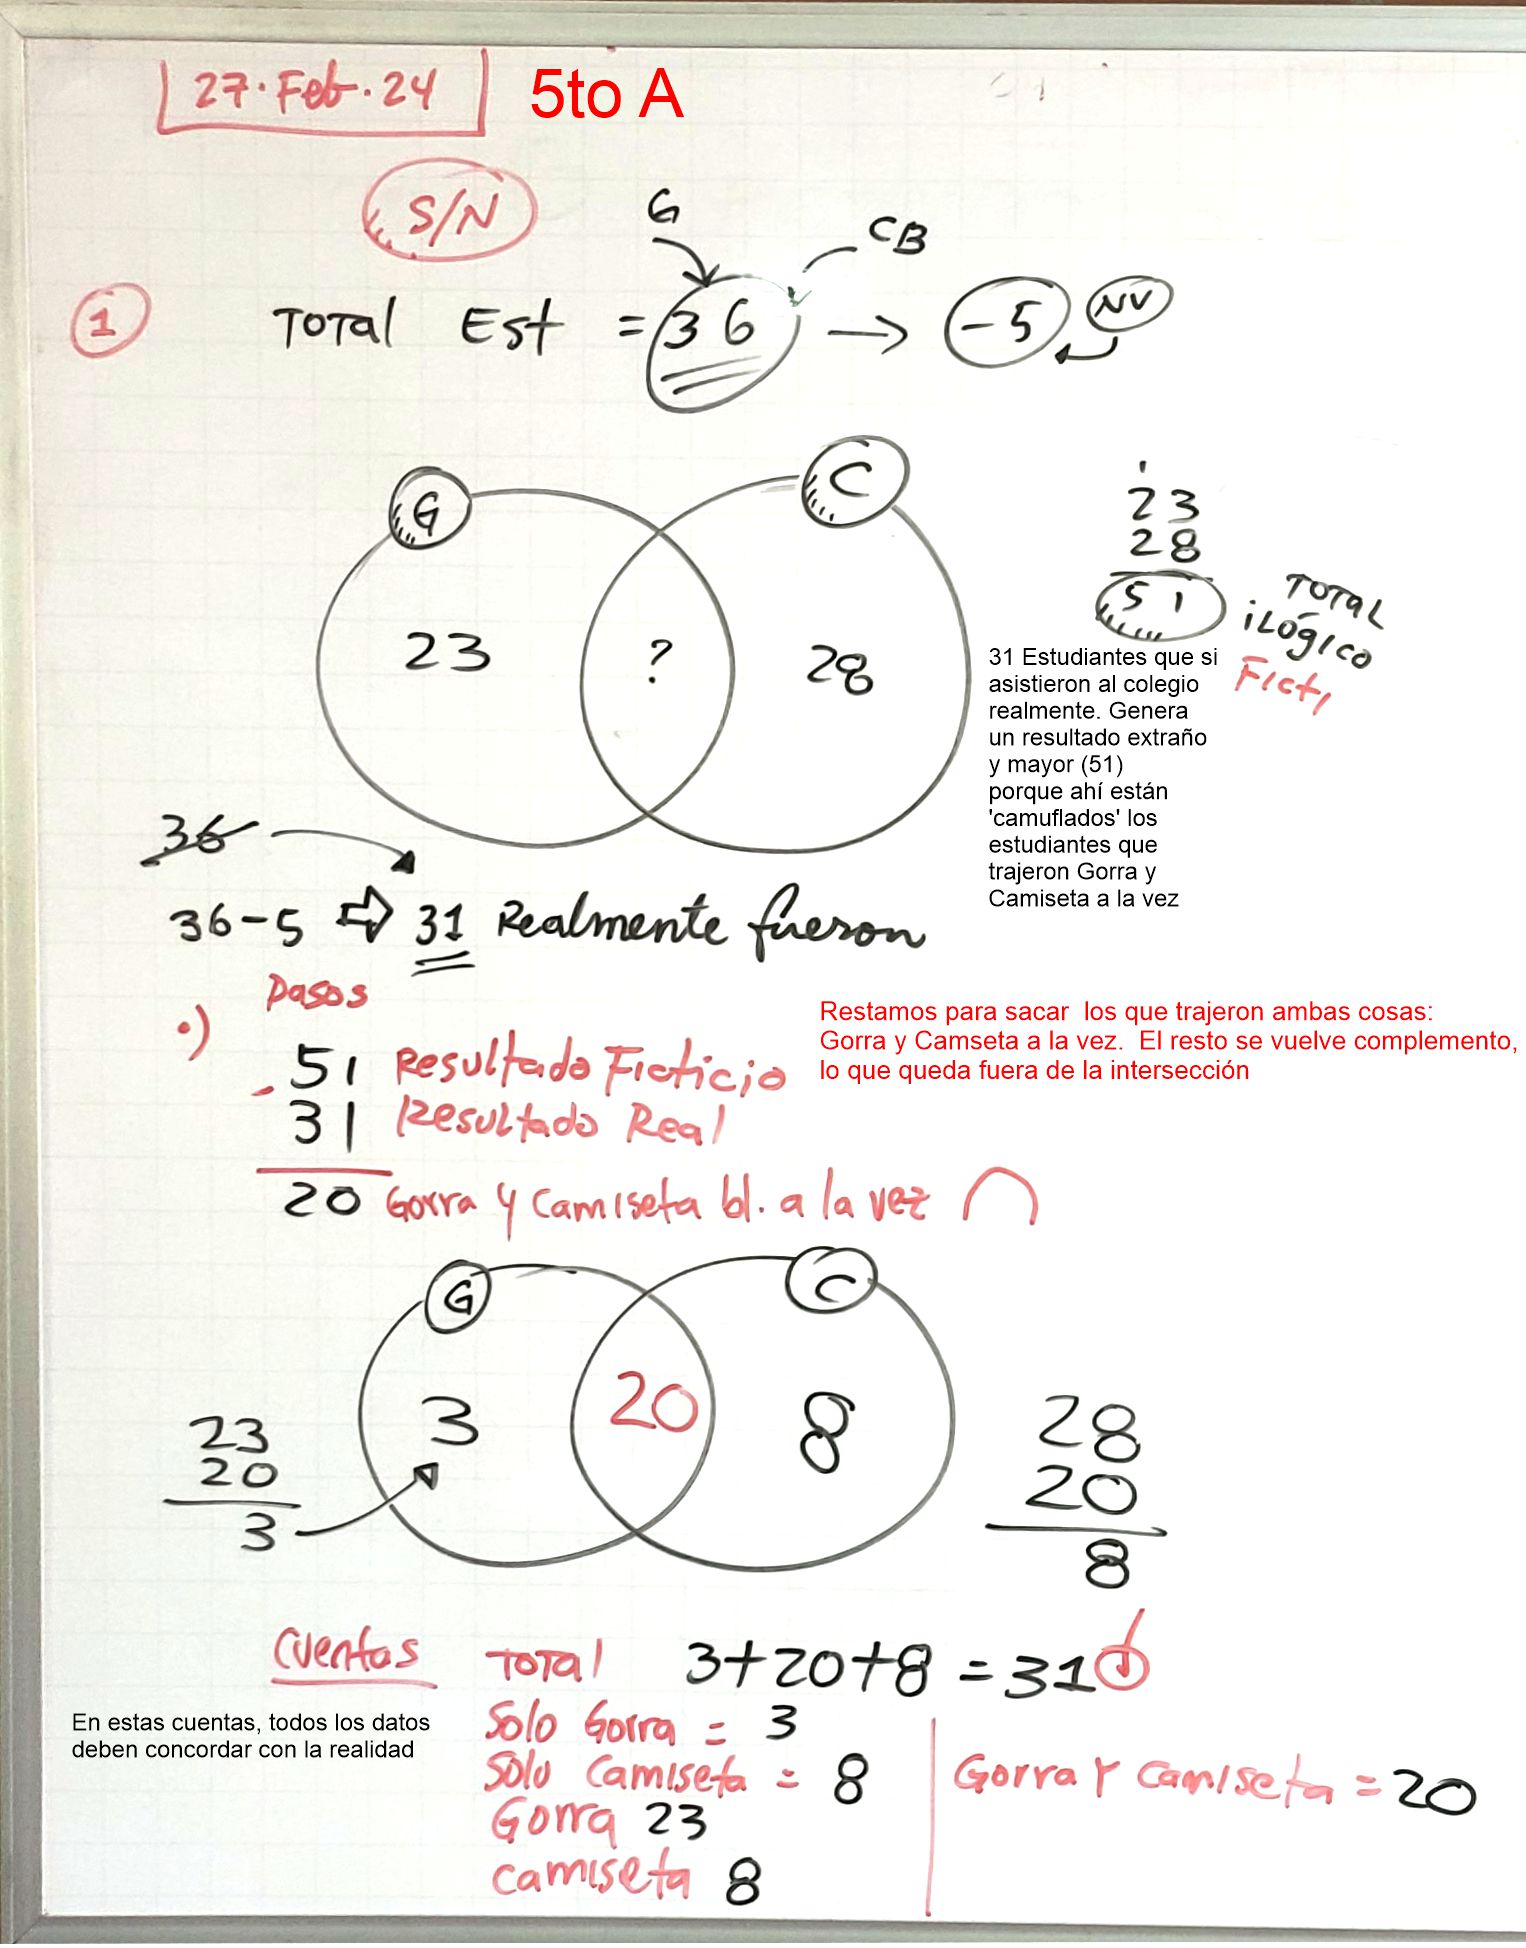 27·Feb·24 5to A
S/N
G
CB
1 TOTal Est = 36 → -5 NV
G C
23 ? 28
23
28
51 TOTAL
iLógico
Ficti
31 Estudiantes que si
asistieron al colegio
realmente. Genera
un resultado extraño
y mayor (51)
porque ahí están
'camuflados' los
estudiantes que
trajeron Gorra y
Camiseta a la vez
36
36-5 ⇨ 31 Realmente fueron
Pasos
•)
- 51 Resultado Ficticio
31 Resultado Real
20 Gorra y Camiseta bl. a la vez ∩
Restamos para sacar los que trajeron ambas cosas:
Gorra y Camseta a la vez. El resto se vuelve complemento,
lo que queda fuera de la intersección
G C
3 20 8
23
20
3
28
20
8
Cuentas TOTAl 3+20+8 = 31
En estas cuentas, todos los datos
deben concordar con la realidad
Solo Gorra = 3
Solo Camiseta = 8
Gorra 23
camiseta 8
Gorra Y Camiseta = 20